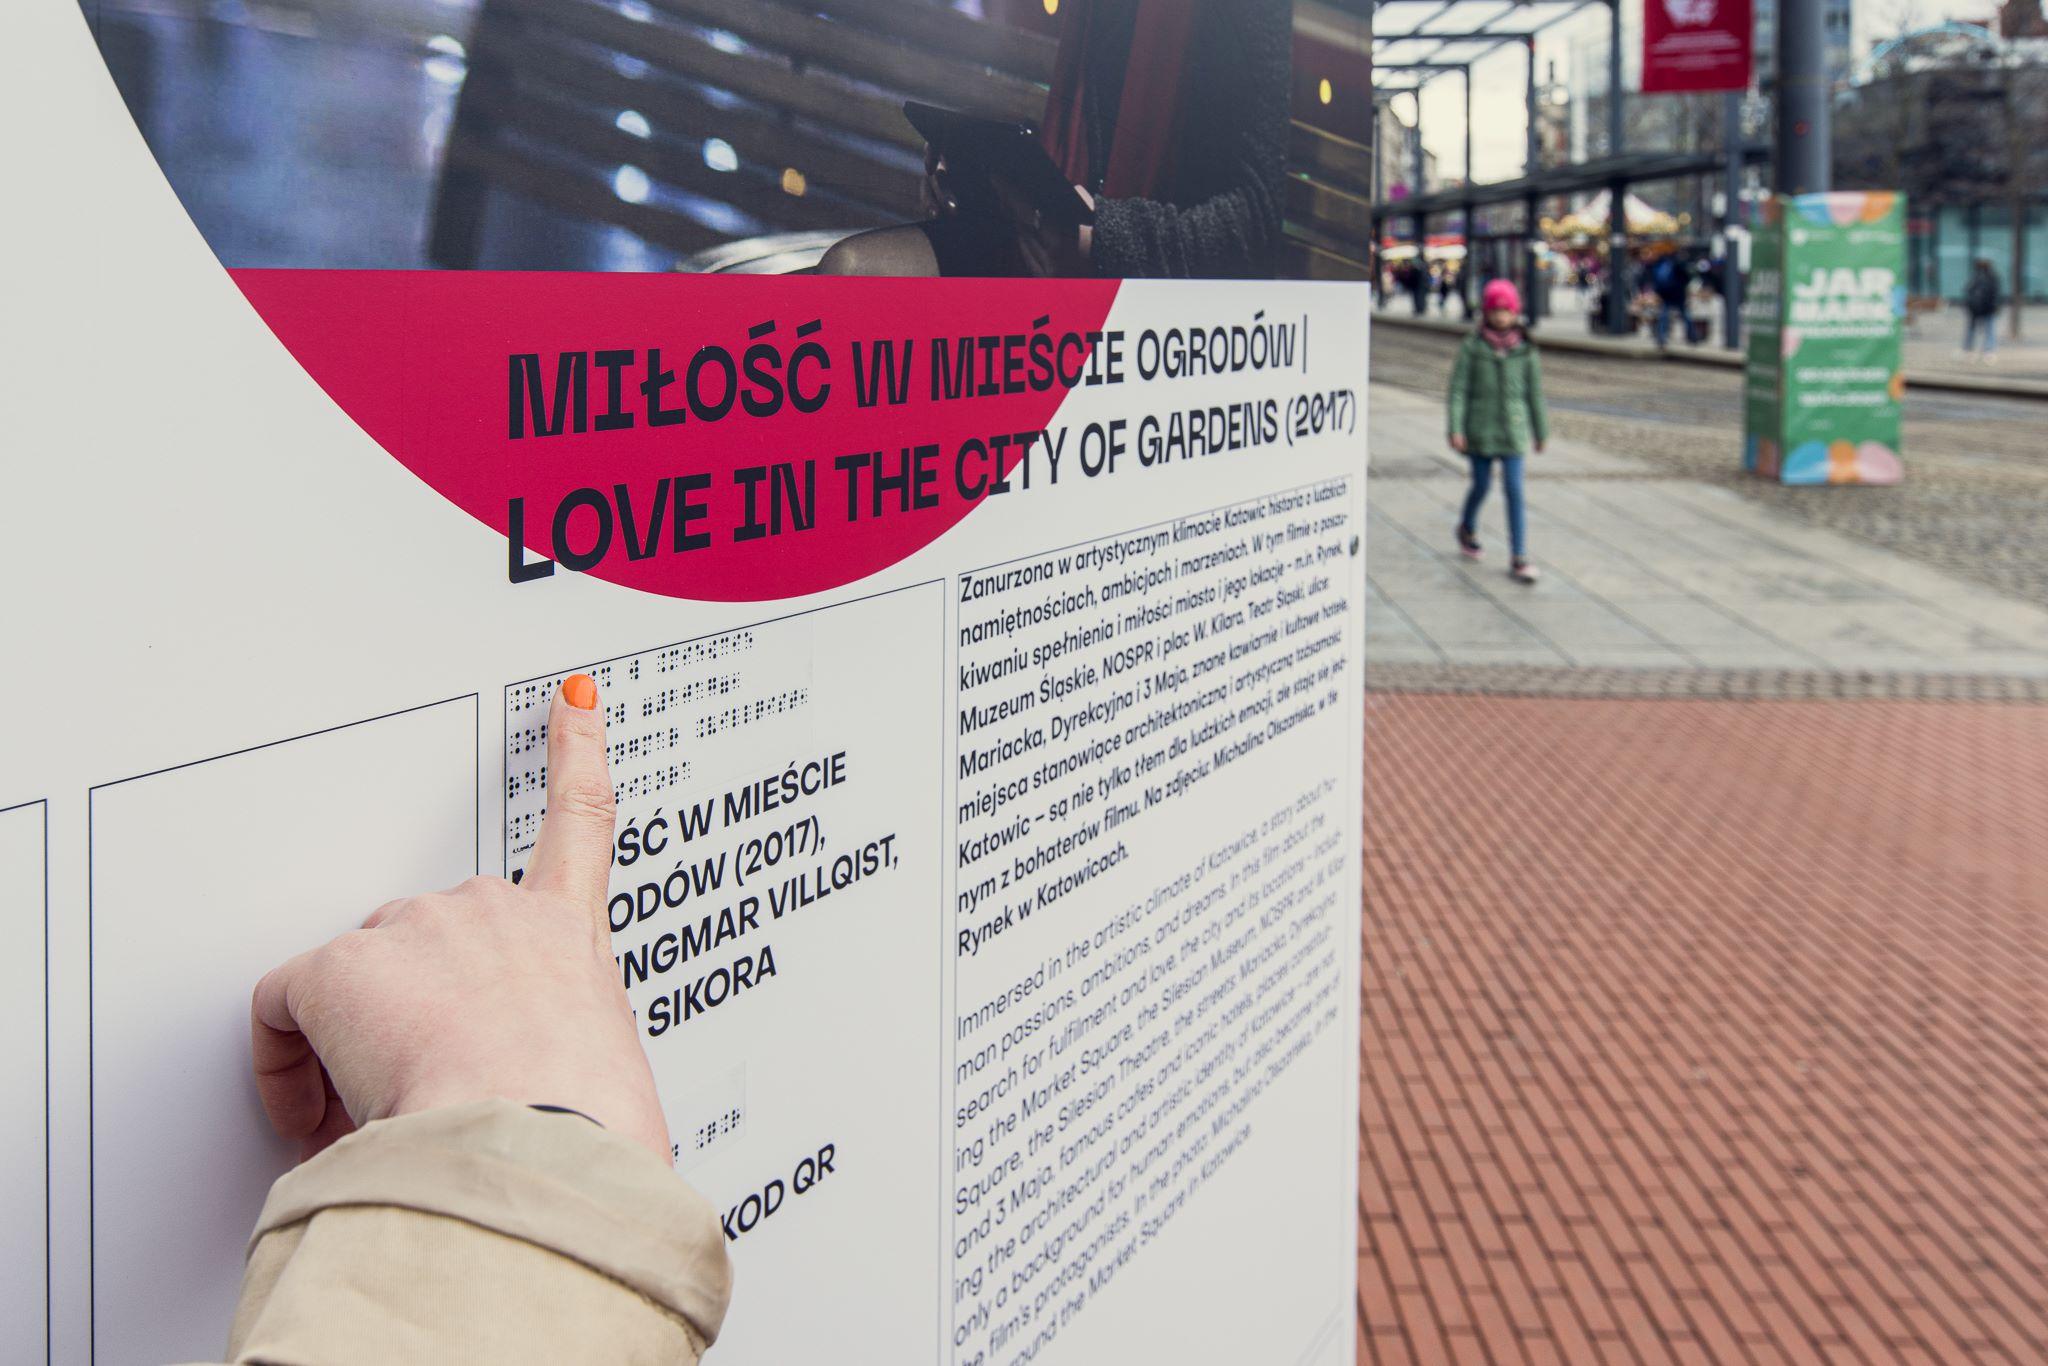 MIŁOŚĆ W MIEŚCIE OGRODÓW |
LOVE IN THE CITY OF GARDENS (2017)
OŚĆ W MIEŚCIE
ODÓW (2017),
INGMAR VILLQIST,
SIKORA
KOD QR
Zanurzona w artystycznym klimacie Katowic historia o ludzkich
namiętnościach, ambicjach i marzeniach. W tym filmie o poszu-
kiwaniu spełnienia i miłości miasto i jego lokacje – m.in. Rynek,
Muzeum Śląskie, NOSPR i plac W. Kilara, Teatr Śląski, ulice:
Mariacka, Dyrekcyjna i 3 Maja, znane kawiarnie i kultowe hotele,
miejsca stanowiące architektoniczną i artystyczną tożsamość
Katowic – są nie tylko tłem dla ludzkich emocji, ale stają się jed-
nym z bohaterów filmu. Na zdjęciu: Michalina Olszańska, w tle
Rynek w Katowicach.
Immersed in the artistic climate of Katowice, a story about hu-
man passions, ambitions, and dreams. In this film about the
search for fulfilment and love, the city and its locations – includ-
ing the Market Square, the Silesian Museum, NOSPR and W. Kilar
Square, the Silesian Theatre, the streets: Mariacka, Dyrekcyjna
and 3 Maja, famous cafes and iconic hotels, places constitut-
ing the architectural and artistic identity of Katowice – are not
only a background for human emotions, but also become one of
he film's protagonists. In the photo: Michalina Olszańska, in the
round the Market Square in Katowice.
JAR
MARK